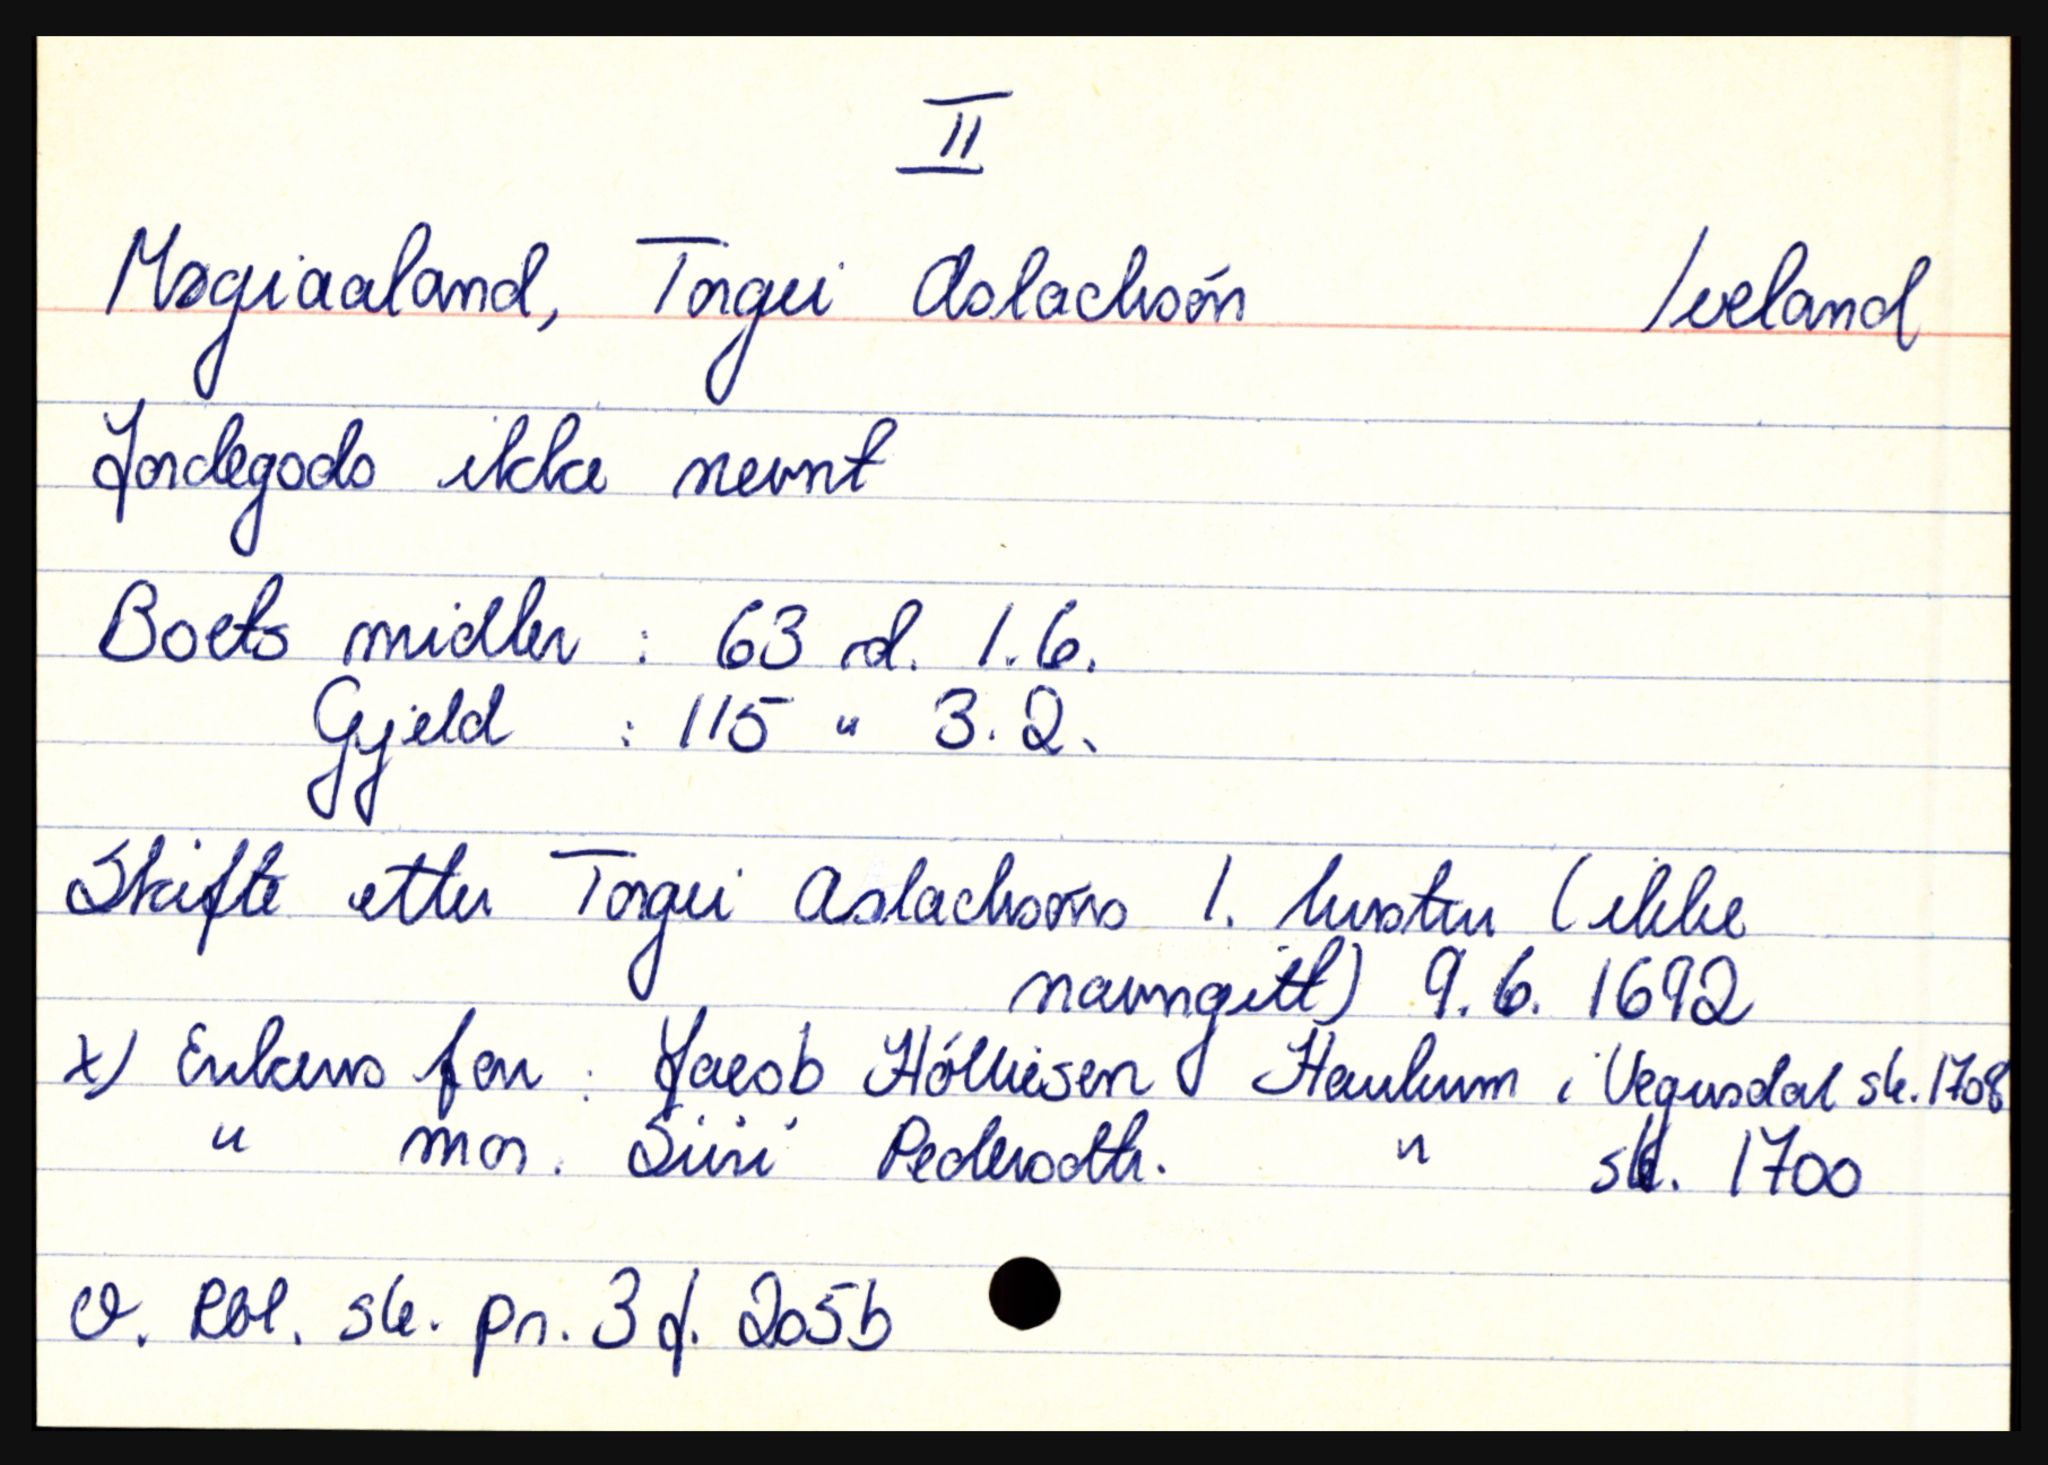 II
Møgiaaland, Torgui Aslachsøn Iveland
Jordegods ikke nevnt
Boets midler : 63 rd. 1.6.
Gjeld : 115 " 3.2.
Skifte etter Torgui Aslachsøns 1. hustru (ikke
navngitt) 9.6. 1692
x) Enkens far : Jacob Hølliesen Haukum i Vegusdal sk. 1708
" mor. Siiri Pedersdtr. " sk. 1700
O. Rbl. sk. pr. 3 f. 205b